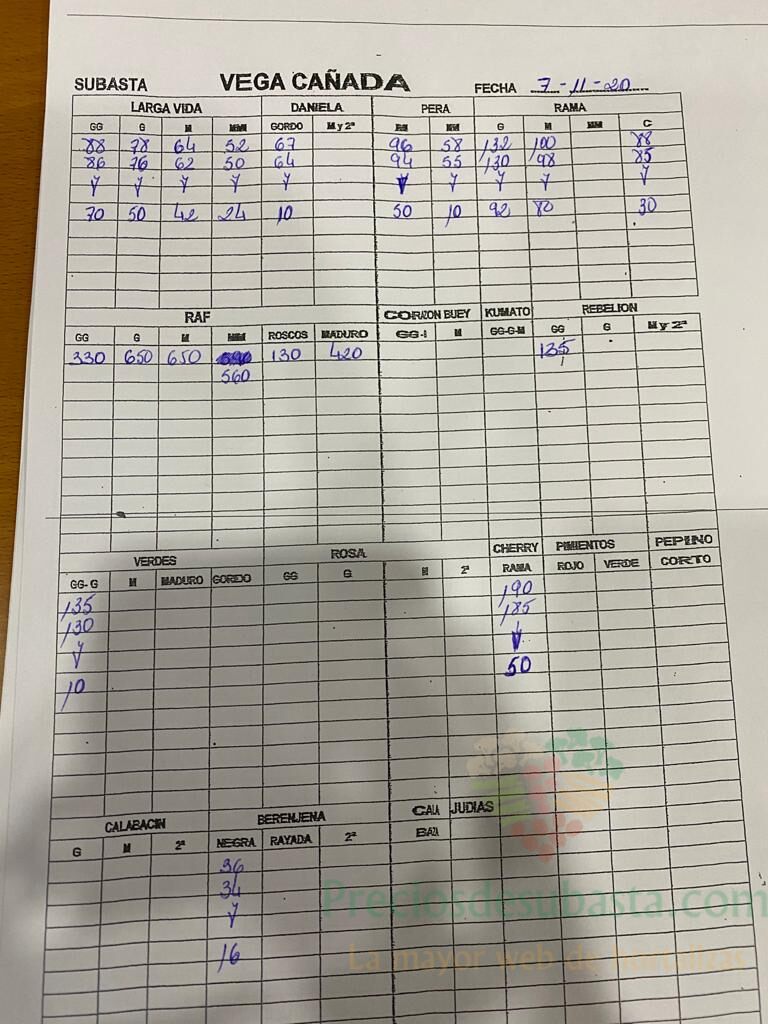 SUBASTA VEGA CAÑADA FECHA 7-11-20
LARGA VIDA DANIELA PERA RAMA
GG G M MM GORDO M y 2ª MM G M MM C
88 78 64 52 67 96 58 132 100 88
86 76 62 50 64 94 55 130 98 85
70 50 42 24 10 50 10 92 80 30
RAF CORAZON BUEY KUMATO REBELION
GG G M MM ROSCOS MADURO GG-I M GG-G-M GG G M y 2ª
330 650 650 130 420 135
560
VERDES ROSA CHERRY PIMIENTOS PEPINO
GG-G M MADURO GORDO GG G M 2ª RAMA ROJO VERDE CORTO
135 190
130 185
10 50
CALABACIN BERENJENA CALA JUDIAS
G M 2ª NEGRA RAYADA 2ª BAZA
36
34
16
Preciosdesubasta.com
La mayor web de hortalizas